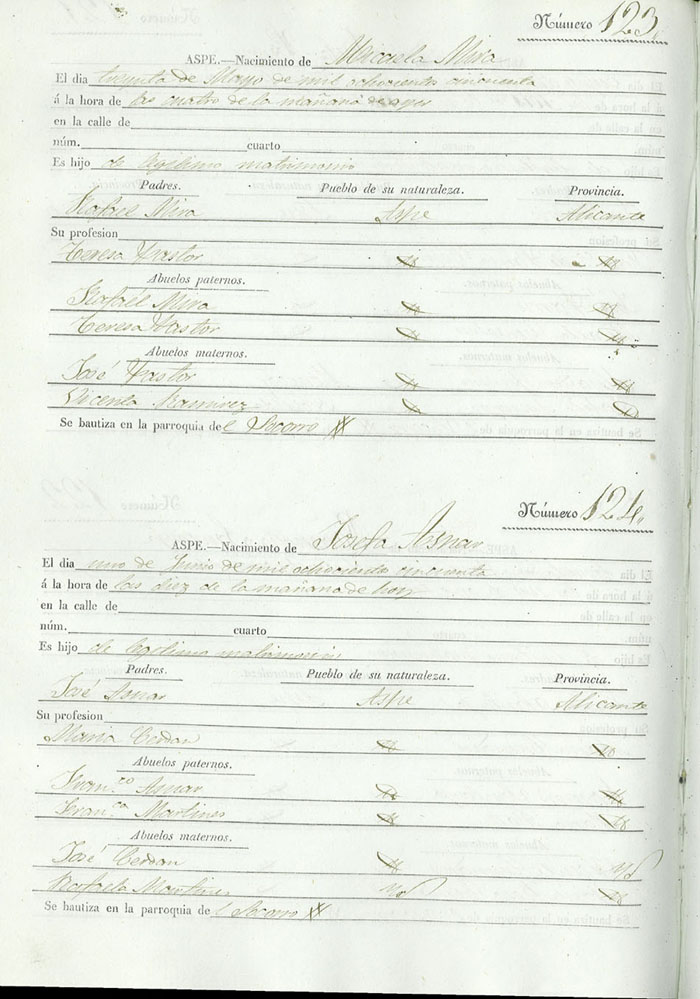 Número 123
ASPE.—Nacimiento de Micaela Mira
El dia treynta de Mayo de mil ochociento cincuenta
á la hora de las cuatro de la mañana de ayer
en la calle de
núm. cuarto
Es hijo de legitimo matrimonio
Padres. Pueblo de su naturaleza. Provincia.
Rafael Mira Aspe Alicante
Su profesion
Teresa Pastor
Abuelos paternos.
Rafael Mira
Teresa Pastor
Abuelos maternos.
José Pastor
Vicenta Ramirez
Se bautiza en la parroquia del Socorro
Número 124
ASPE.—Nacimiento de Josefa Asnar
El dia uno de Junio de mil ochociento cincuenta
á la hora de las diez de la mañana de hoy
en la calle de
núm. cuarto
Es hijo de legitimo matrimonio
Padres. Pueblo de su naturaleza. Provincia.
José Asnar Aspe Alicante
Su profesion
Maria Cerdan
Abuelos paternos.
Fran.co Asnar
Fran.ca Martines
Abuelos maternos.
José Cerdan Yd
Rafaela Martines Yd
Se bautiza en la parroquia del Socorro